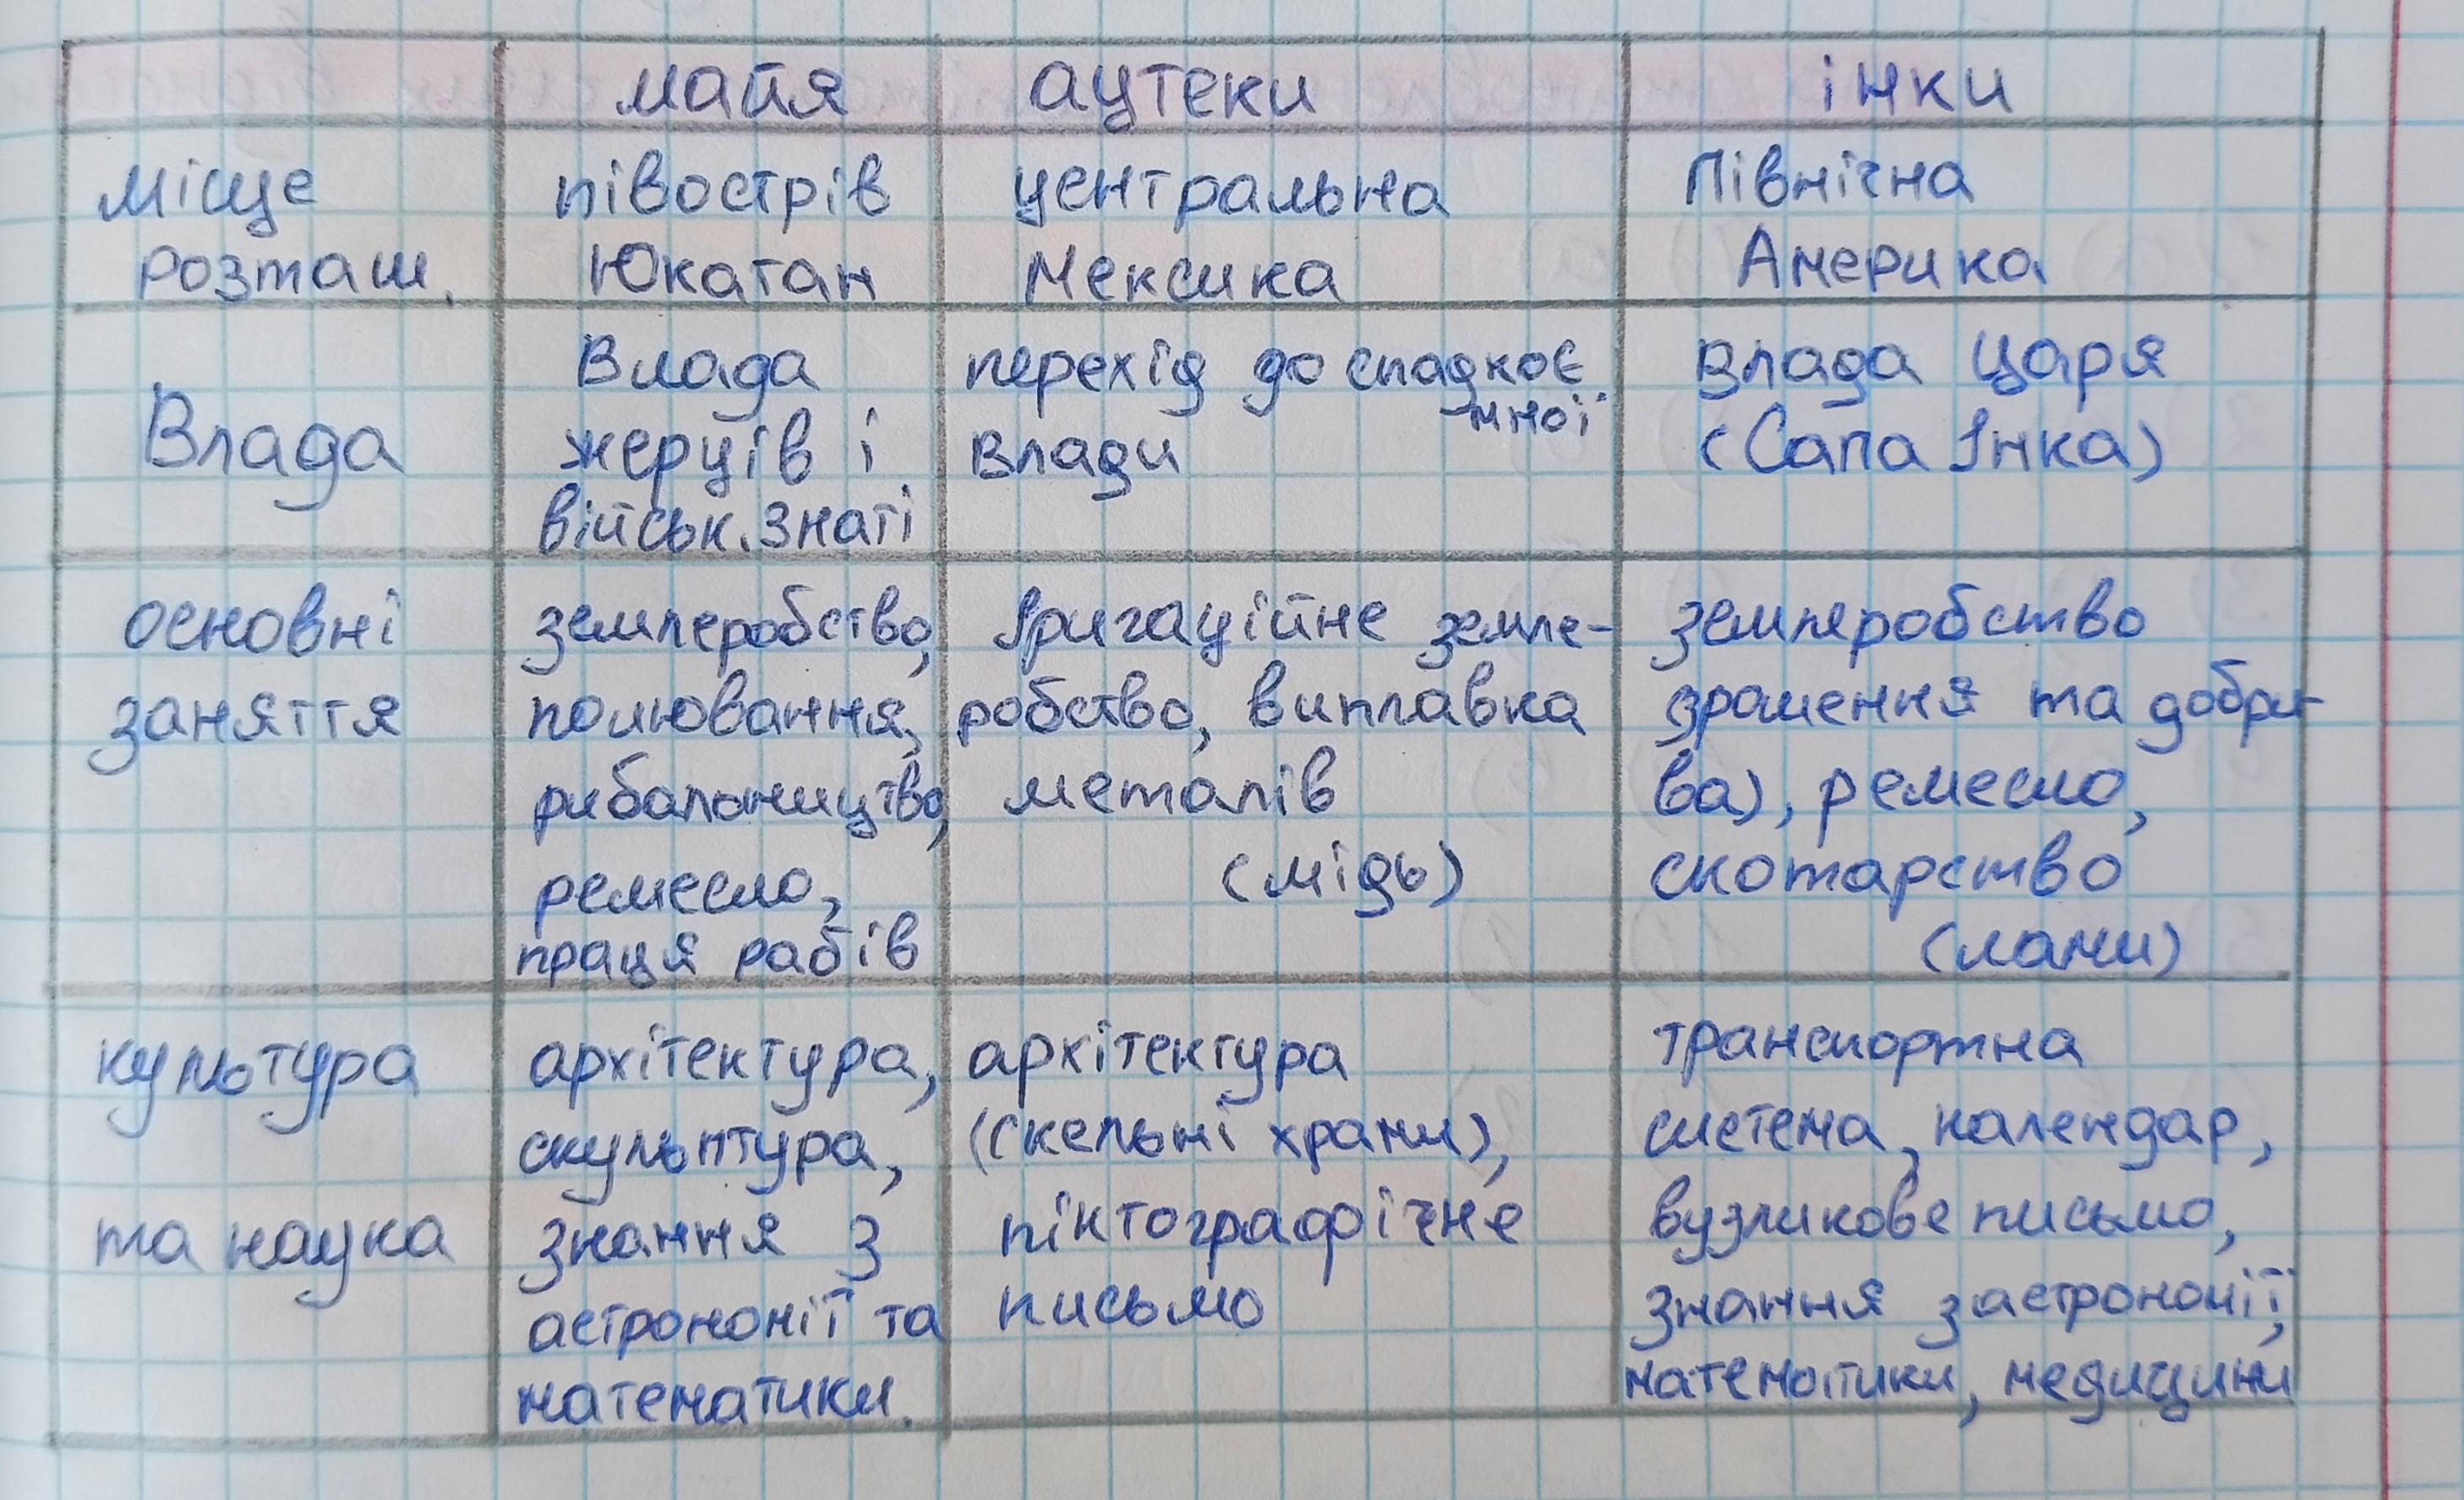 майя
ацтеки
інки
місце
розташ.
півострів
Юкатан
центральна
Мексика
Північна
Америка
Влада
Влада
жерців і
військ. знаті
перехід до спадкоє
мної
влади
влада царя
(Сапа Інка)
основні
заняття
землеробство,
полювання,
рибальництво,
ремесло,
праця рабів
Іригаційне земле-
робство, виплавка
металів
(мідь)
землеробство
зрошення та добри-
ва), ремесло,
скотарство
(лами)
культура
та наука
архітектура,
скульптура,
знання з
астрономії та
математики.
архітектура
(скельні храми),
піктографічне
письмо
транспортна
система, календар,
вузликове письмо,
знання з астрономії,
математики, медицини